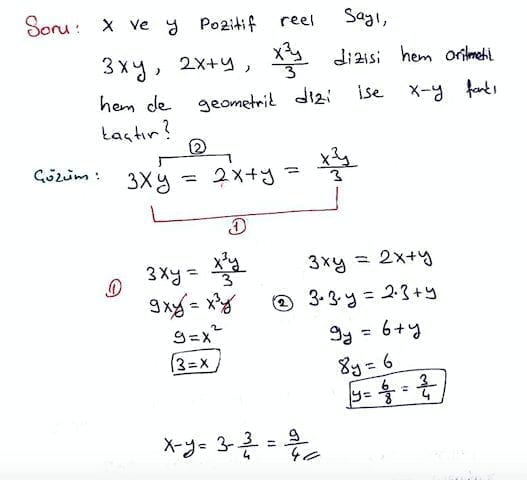 Soru: x ve y pozitif reel sayı,
3xy, 2x+y, x³y/3 dizisi hem aritmetik
hem de geometrik dizi ise x-y farkı
kaçtır?
②
Çözüm: 3xy = 2x+y = x³y/3
①
① 3xy = x³y/3
9xy = x³y
9=x²
3=x
3xy = 2x+y
② 3·3·y = 2·3+y
9y = 6+y
8y = 6
y = 6/8 = 3/4
x-y = 3-3/4 = 9/4